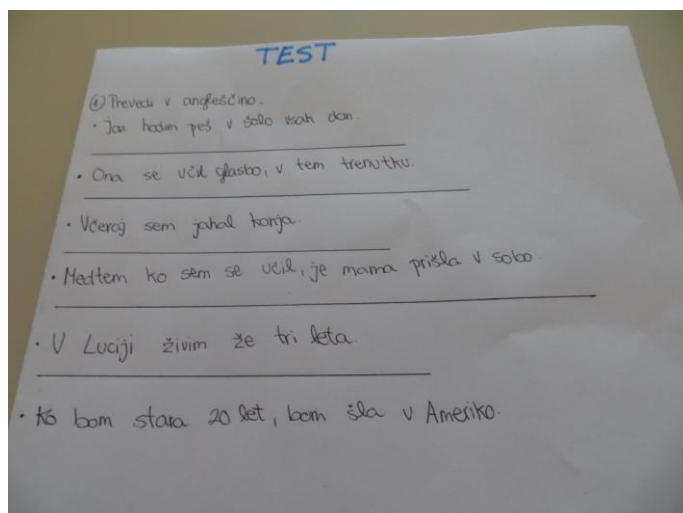 TEST
① Prevedi v angleščino.
• Jaz hodim peš v šolo vsak dan.
• Ona se uči glasbo, v tem trenutku.
• Včeraj sem jahal konja.
• Medtem ko sem se učil, je mama prišla v sobo.
• V Luciji živim že tri leta.
• Ko bom stara 20 let, bom šla v Ameriko.